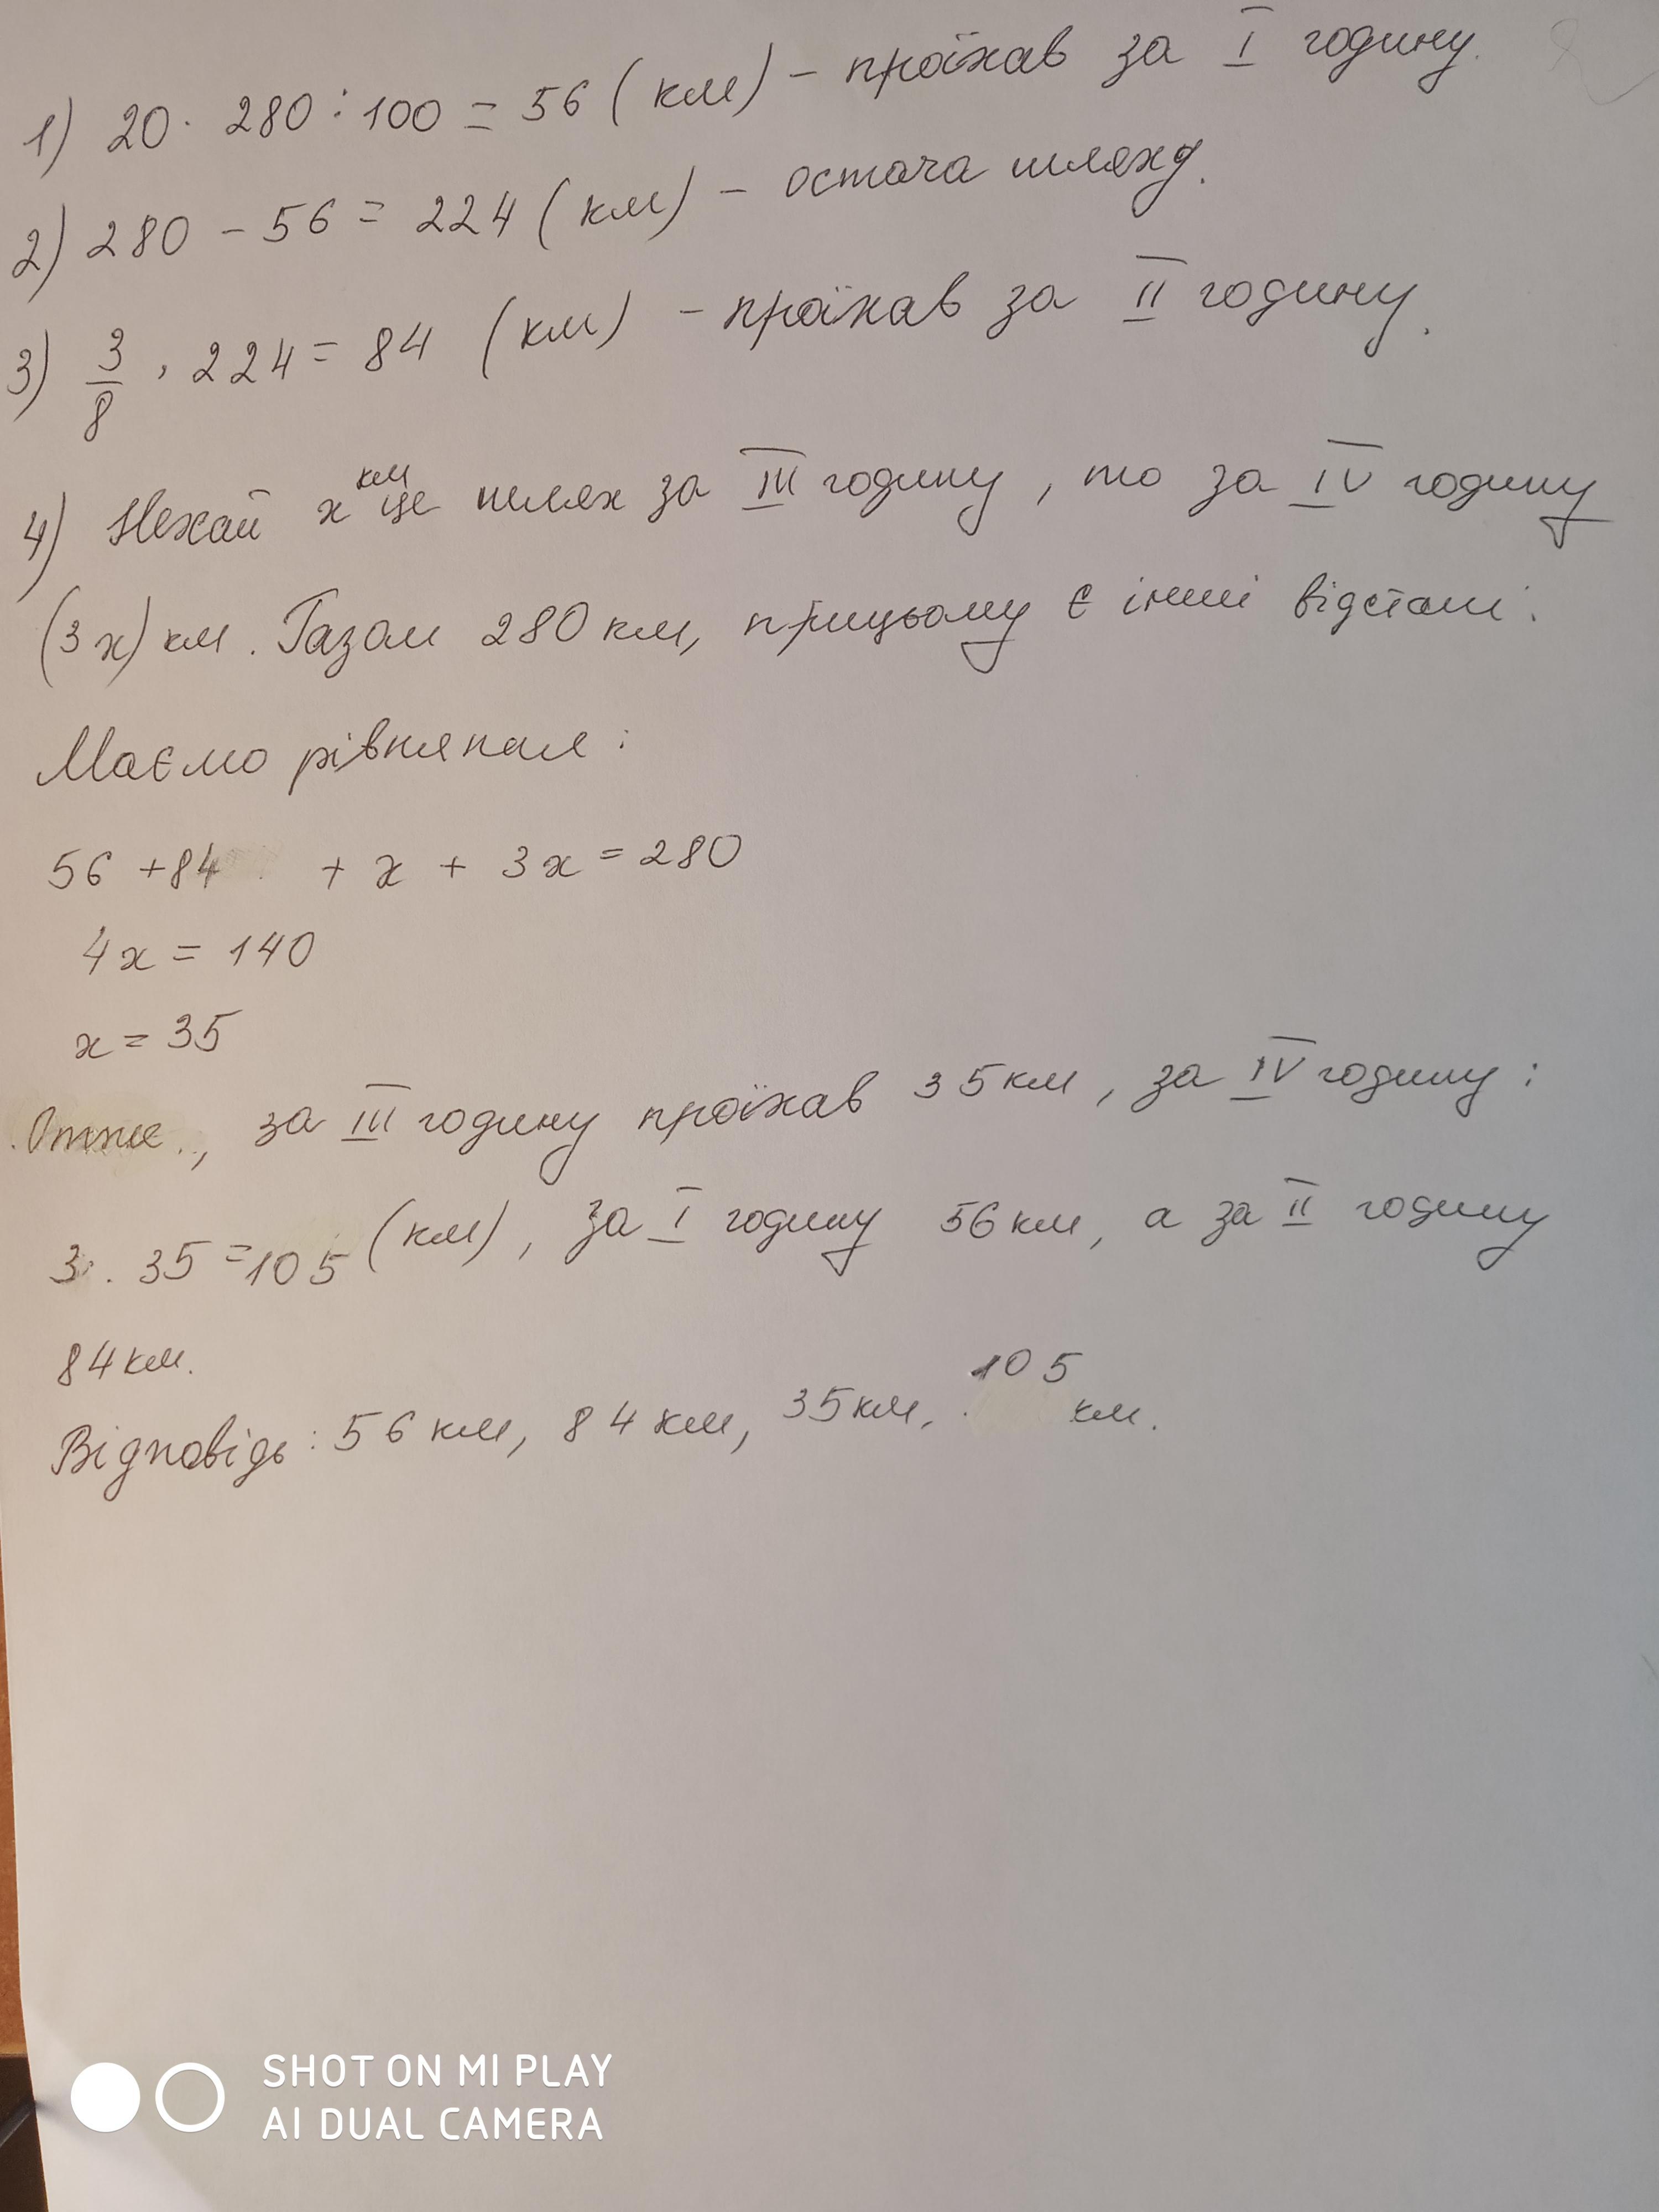 1) 20 · 280 : 100 = 56 (км) – проїхав за I годину.
2) 280 – 56 = 224 (км) – остача шляху.
3) 3/8 · 224 = 84 (км) – проїхав за II годину.
4) Нехай x км це шлях за III годину, то за IV годину
(3x) км. Разом 280 км, прицьому є інші відстані.
Маємо рівняння:
56 + 84 + x + 3x = 280
4x = 140
x = 35
Отже, за III годину проїхав 35 км, за IV годину:
3 · 35 = 105 (км), за I годину 56 км, а за II годину
84 км.
Відповідь: 56 км, 84 км, 35 км, 105 км.
SHOT ON MI PLAY
AI DUAL CAMERA